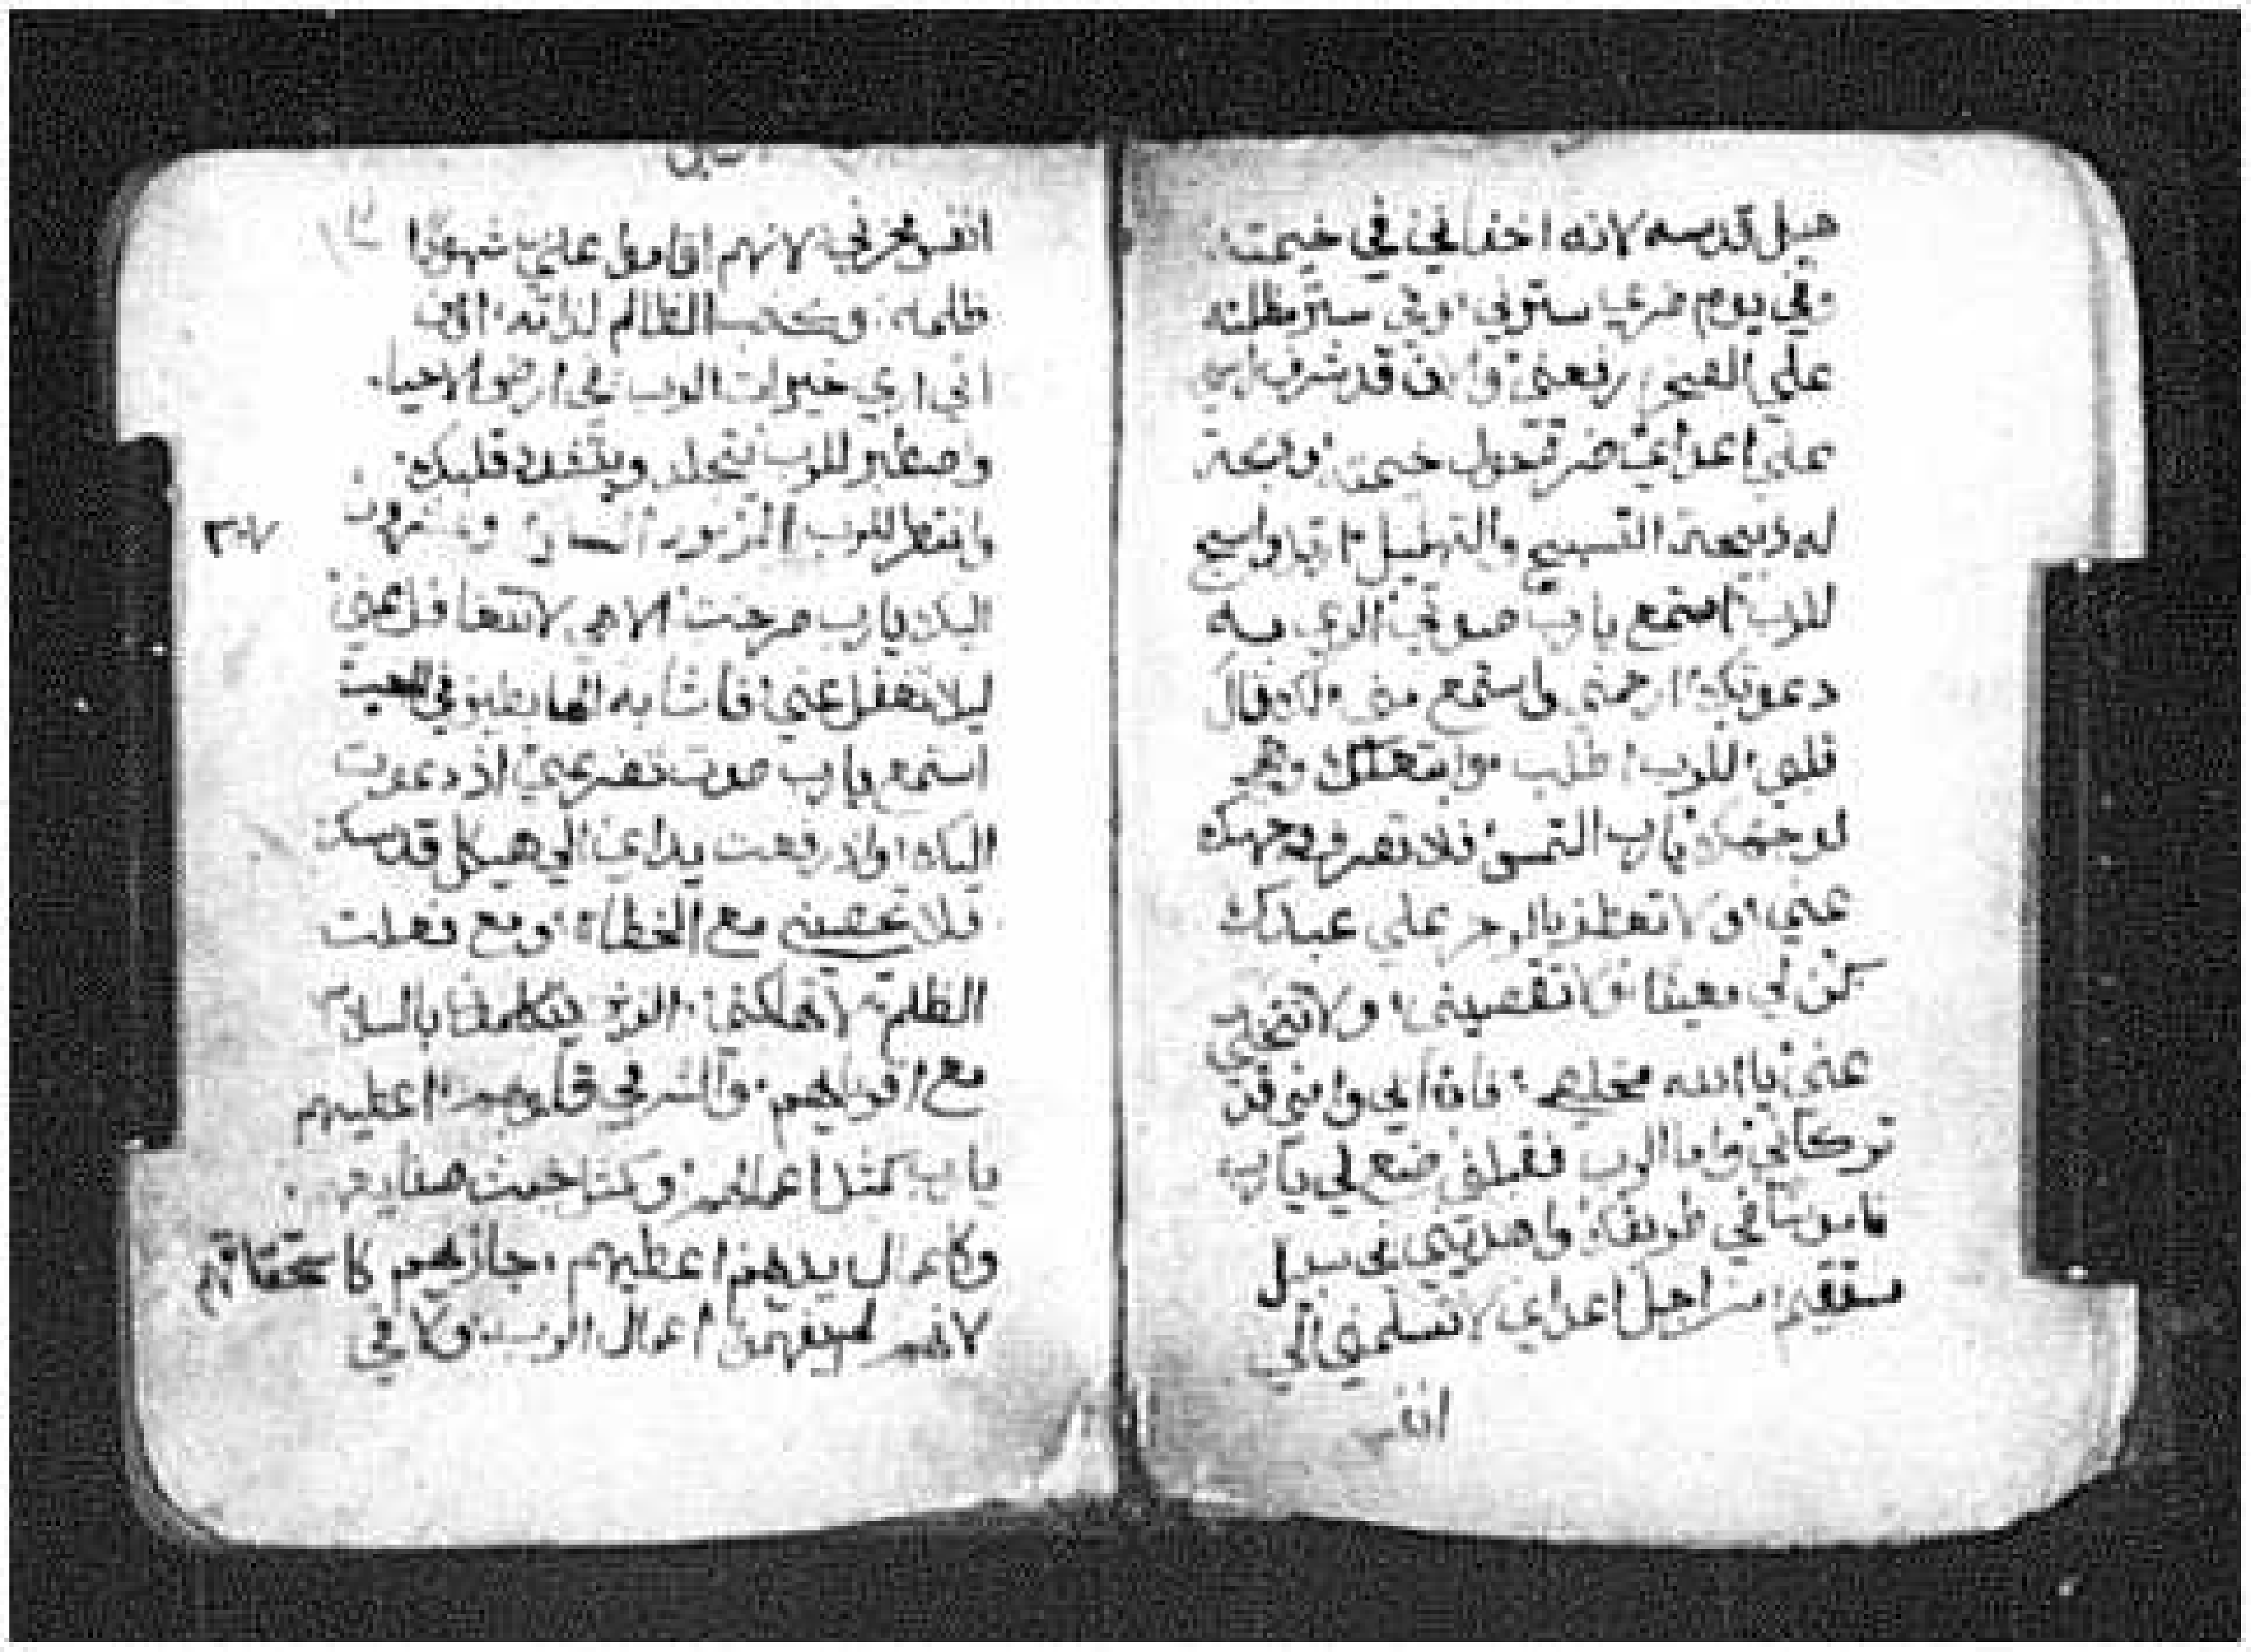 هيكل قدسه لانه اخفاني في خيمته
وفي يوم ضري سترني وفي ستر مظلته
علي الصخره رفعني والان قد شرف راسي
علي اعداي ضرت حول خيمته وذبحة
له ذبيحة التسبيح والتهليل اقبل واسبح
للرب استمع يا رب صوتي الذي به
دعوتك ارحمني واستمع مني لك قال
قلبي للرب اطلب وابتغاك وجهي
لوجهك يا رب التمس فلا تصرف وجهك
عني ولا تعط بالرجز علي عبدك
كن لي معينا ولا تقصيني ولا تتخلي
عني يا الله مخلصي فان ابي وامي قد
تركاني واما الرب فقبلني ضع لي يا رب
ناموسا في طريقك واهديني في سبيل
مستقيم من اجل اعداي لا تسلمني الي
انفس
انفس محزني لانهم اقاموا علي شهودا
ظلمه وكذب الظالم لذاته اومن
اني اري خيرات الرب في ارض الاحياء
واصطبر للرب تتجلد ويتشدد قلبك
وانتظر للرب المزمور السابع وعشرون
٢٧
اليك يا رب صرخت الاهي لا تتغافل عني
ليلا تغفل عني فاشابه الهابطين في الجب
استمع يا رب صوت تضرعي اذ دعوت
اليك واذ رفعت يداي الي هيكل قدسك
فلا تحصيني مع الخطاه ومع فعلت
الظلم لا تهلكني الذين يتكلمون بالسلام
مع اقرباهم والشر في قلوبهم اعطيهم
يا رب كمثل اعمالهم وكمثل خبث صنايعهم
وكاعمال يديهم اعطيهم جازهم كاستحقاقهم
لانهم لم يفهمون اعمال الرب ولا في